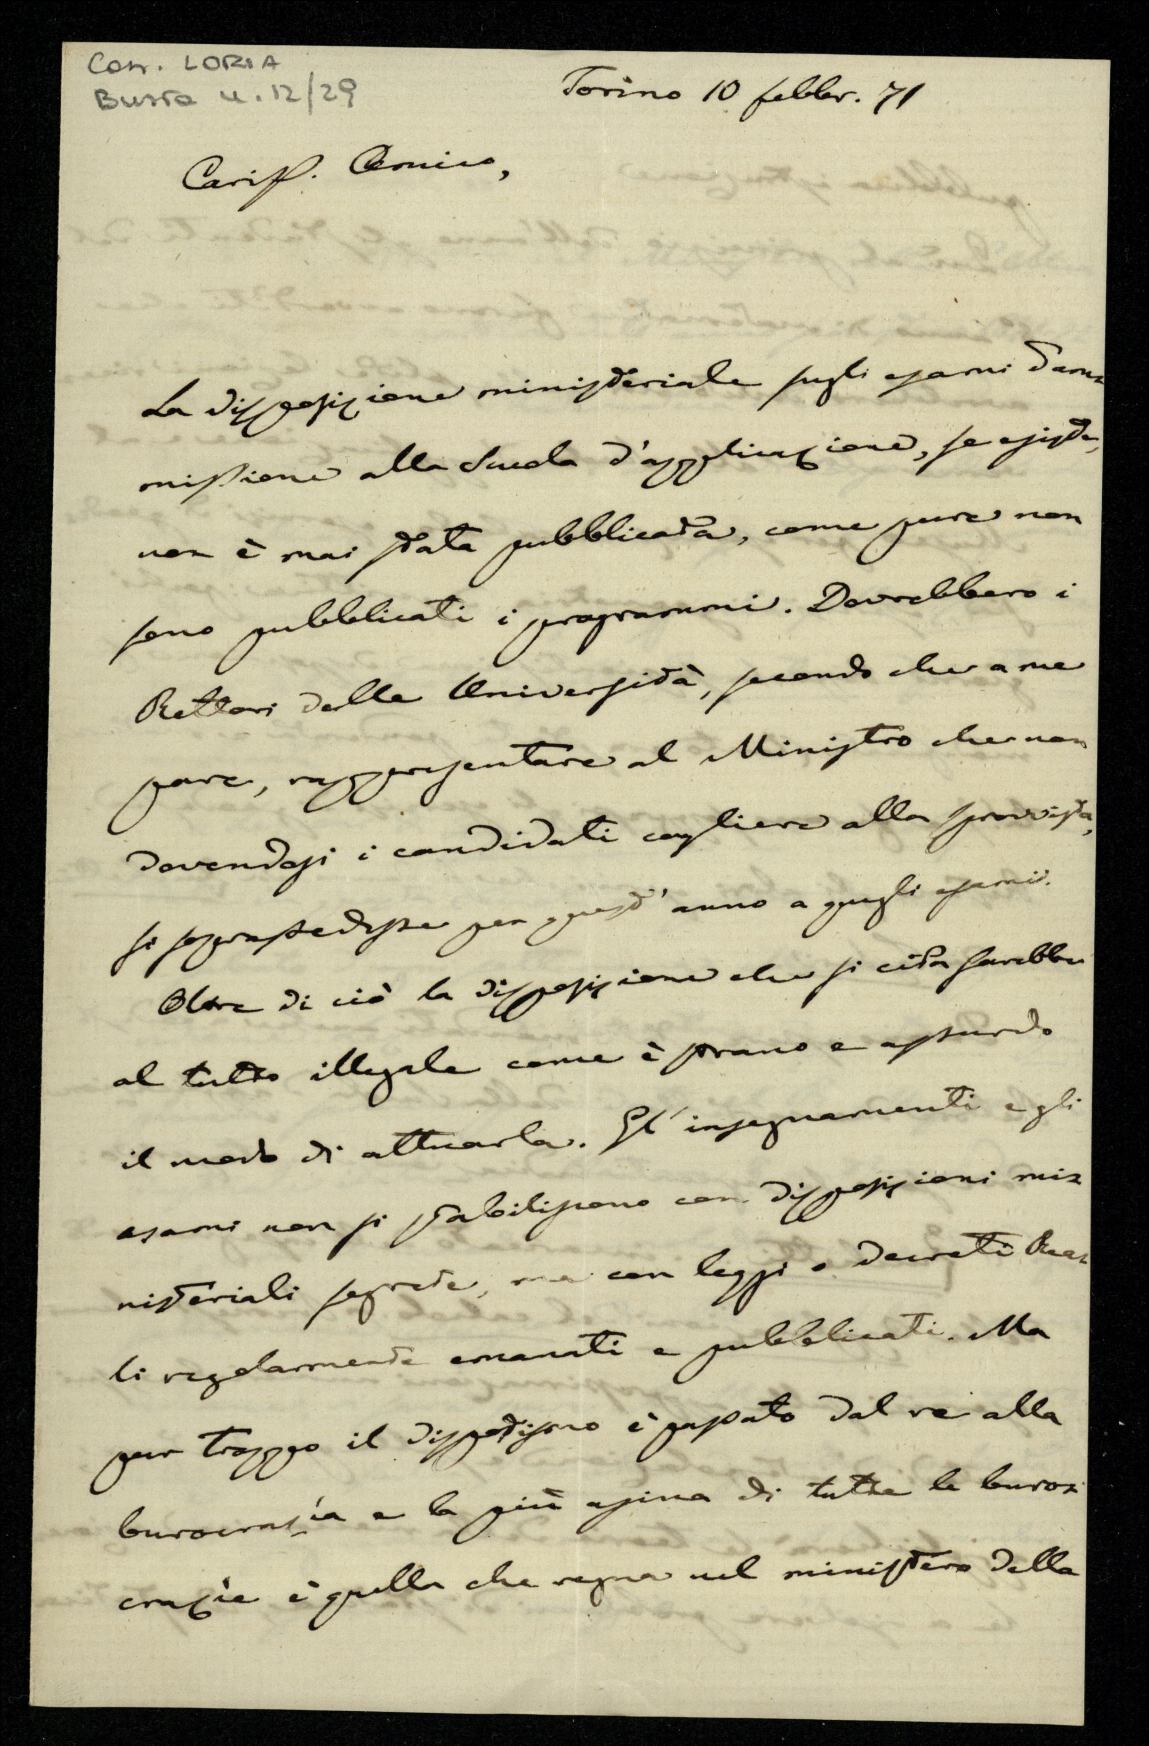 Corr. LORIA
Busta n. 12/29
Torino 10 febbr. 71
Cariss. Amico,
La disposizione ministeriale sugli esami d'am=
missione alla Scuola d'applicazione, se esiste,
non è mai stata pubblicata, come pure non
sono pubblicati i programmi. Dovrebbero i
Rettori delle Università, secondo che a me
pare, rappresentare al Ministro che non
dovendosi i candidati cogliere alla sprovvista,
si soprassedesse per quest'anno a quegli esami.
Oltre di ciò la disposizione che si cita sarebbe
al tutto illegale come è strano e assurdo
il modo di attuarla. Gl'insegnamenti e gli
esami non si stabiliscono con disposizioni mi=
nisteriali segrete, ma con leggi o decreti Rea=
li regolarmente emanati e pubblicati. Ma
pur troppo il dispotismo è passato dal re alla
burocrazia e la più asina di tutte le buro=
crazie è quella che regna nel ministero della